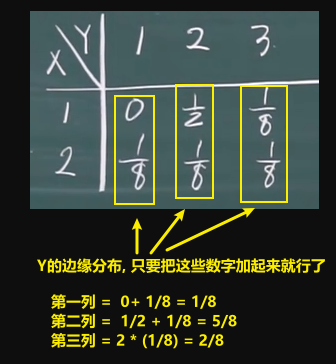 X Y 1 2 3
1 0 1/2 1/8
2 1/8 1/8 1/8
Y的边缘分布, 只要把这些数字加起来就行了
第一列 = 0+ 1/8 = 1/8
第二列 = 1/2 + 1/8 = 5/8
第三列 = 2 * (1/8) = 2/8